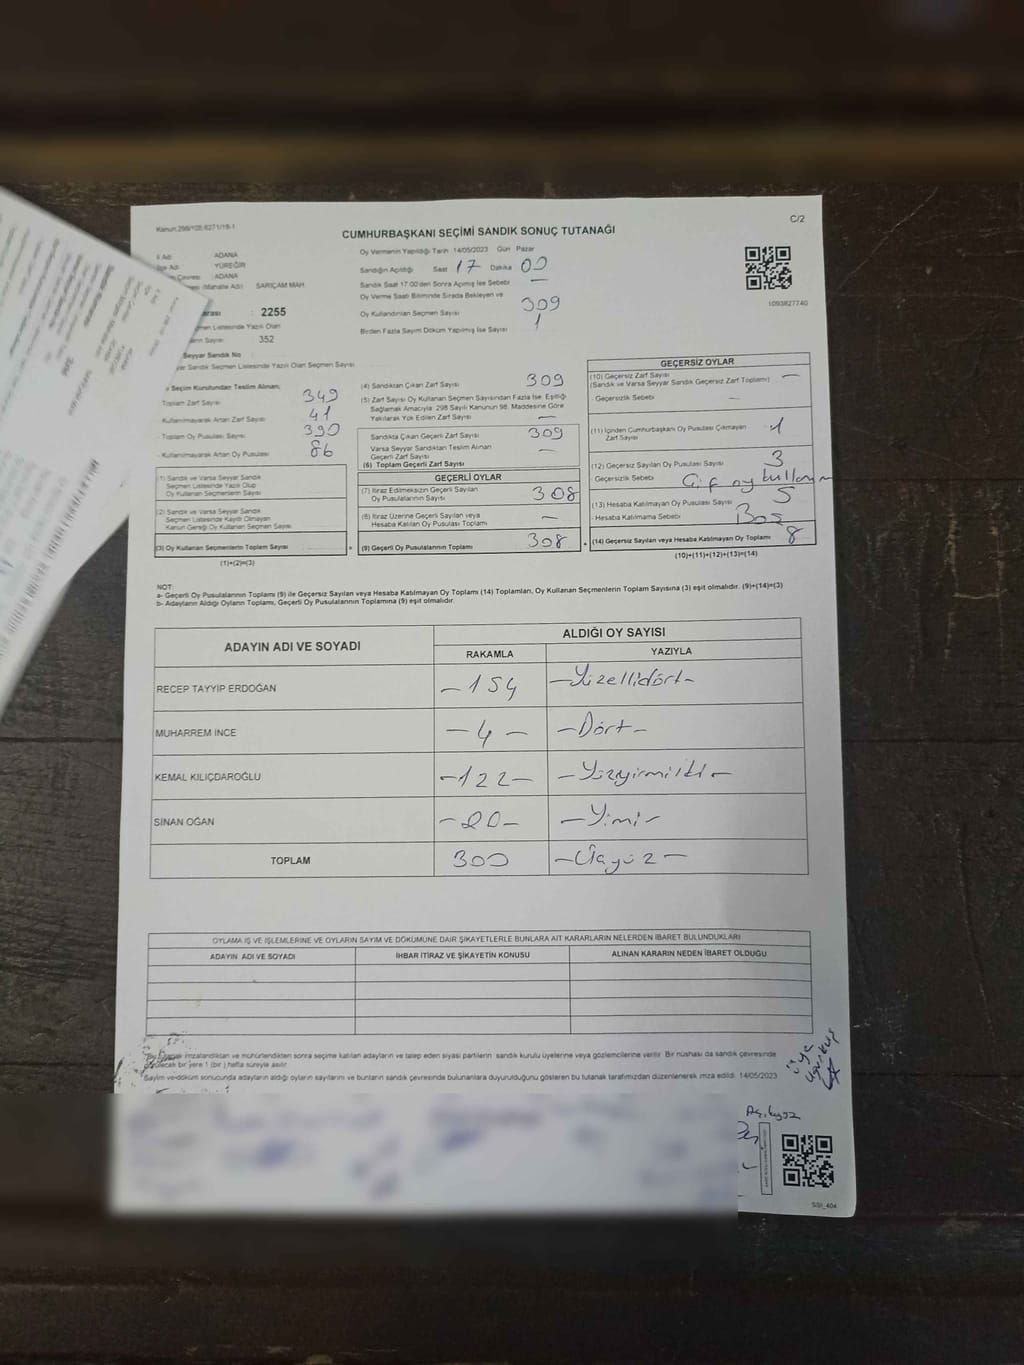 Kanun:298/105;6271/19-1
C/2
CUMHURBAŞKANI SEÇİMİ SANDIK SONUÇ TUTANAĞI
İl Adı : ADANA
İlçe Adı : YÜREĞİR
Çevresi : ADANA
(Mahalle Adı) : SARIÇAM MAH.
2255
Seçmen Listesinde Yazılı Olan
Seçmen Sayısı : 352
Seyyar Sandık No :
Seyyar Sandık Seçmen Listesinde Yazılı Olan Seçmen Sayısı
Oy Vermenin Yapıldığı Tarih 14/05/2023 Gün Pazar
Sandığın Açıldığı Saat 17 Dakika 00
Sandık Saat 17:00'den Sonra Açılmış İse Sebebi —
Oy Verme Saati Bitiminde Sırada Bekleyen ve
Oy Kullandırılan Seçmen Sayısı 309
Birden Fazla Sayım Döküm Yapılmış İse Sayısı 1
1093827740
Seçim Kurulundan Teslim Alınan;
Toplam Zarf Sayısı 349
- Kullanılmayarak Artan Zarf Sayısı 41
- Toplam Oy Pusulası Sayısı 390
- Kullanılmayarak Artan Oy Pusulası 86
(1) Sandık ve Varsa Seyyar Sandık
Seçmen Listesinde Yazılı Olup
Oy Kullanan Seçmenlerin Sayısı
(2) Sandık ve Varsa Seyyar Sandık
Seçmen Listesinde Kayıtlı Olmayan
Kanun Gereği Oy Kullanan Seçmen Sayısı
(3) Oy Kullanan Seçmenlerin Toplam Sayısı
(1)+(2)=(3)
(4) Sandıktan Çıkan Zarf Sayısı 309
(5) Zarf Sayısı Oy Kullanan Seçmen Sayısından Fazla İse, Eşitliği
Sağlamak Amacıyla; 298 Sayılı Kanunun 98. Maddesine Göre
Yakılarak Yok Edilen Zarf Sayısı —
Sandıkta Çıkan Geçerli Zarf Sayısı 309
Varsa Seyyar Sandıktan Teslim Alınan
Geçerli Zarf Sayısı —
(6) Toplam Geçerli Zarf Sayısı
GEÇERLİ OYLAR
(7) İtiraz Edilmeksizin Geçerli Sayılan
Oy Pusulalarının Sayısı 308
(8) İtiraz Üzerine Geçerli Sayılan veya
Hesaba Katılan Oy Pusulası Toplamı —
(9) Geçerli Oy Pusulalarının Toplamı 308
GEÇERSİZ OYLAR
(10) Geçersiz Zarf Sayısı —
(Sandık ve Varsa Seyyar Sandık Geçersiz Zarf Toplamı)
- Geçersizlik Sebebi —
(11) İçinden Cumhurbaşkanı Oy Pusulası Çıkmayan 1
Zarf Sayısı
(12) Geçersiz Sayılan Oy Pusulası Sayısı 3
Geçersizlik Sebebi
(13) Hesaba Katılmayan Oy Pusulası Sayısı 5
- Hesaba Katılmama Sebebi Boş
(14) Geçersiz Sayılan veya Hesaba Katılmayan Oy Toplamı 8
(10)+(11)+(12)+(13)=(14)
NOT:
a- Geçerli Oy Pusulalarının Toplamı (9) ile Geçersiz Sayılan veya Hesaba Katılmayan Oy Pusulası Toplamı (14) Toplamları, Oy Kullanan Seçmenlerin Toplam Sayısına (3) eşit olmalıdır. (9)+(14)=(3)
b- Adayların Aldığı Oyların Toplamı, Geçerli Oy Pusulalarının Toplamına (9) eşit olmalıdır.
ADAYIN ADI VE SOYADI
ALDIĞI OY SAYISI
RAKAMLA YAZIYLA
RECEP TAYYİP ERDOĞAN -154 -Yüzellidört-
MUHARREM İNCE -4- -Dört-
KEMAL KILIÇDAROĞLU -122- -Yüzyirmiiki-
SİNAN OĞAN -20- -Yimi-
TOPLAM 300 -Üçyüz-
OYLAMA İŞ VE İŞLEMLERİNE VE OYLARIN SAYIM VE DÖKÜMÜNE DAİR ŞİKAYETLERLE BUNLARA AİT KARARLARIN NELERDEN İBARET BULUNDUKLARI
ADAYIN ADI VE SOYADI İHBAR İTİRAZ VE ŞİKAYETİN KONUSU ALINAN KARARIN NEDEN İBARET OLDUĞU
imzalandıktan ve mühürlendikten sonra seçime katılan adayların ve talep eden siyasi partilerin sandık kurulu üyelerine veya gözlemcilerine verilir. Bir nüshası da sandık çevresinde
görülecek bir yere 1 (bir) hafta süreyle asılır.
Sayım ve döküm sonucunda adayların aldığı oyların sayılarını ve bunların sandık çevresinde bulunanlara duyurulduğunu gösteren bu tutanak tarafımızdan düzenlenerek imza edildi. 14/05/2023
Üye
SSI_404